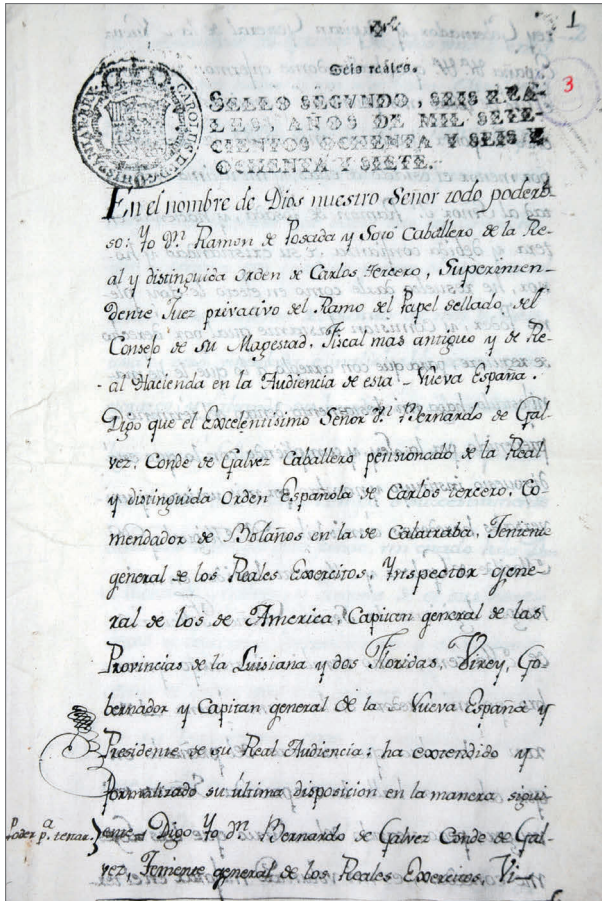 1
3
Seis reales.
SELLO SEGVNDO, SEIS REA-
LES, AÑOS DE MIL SETE-
CIENTOS OCHENTA Y SEIS Y
OCHENTA Y SIETE.
En el nombre de Dios nuestro Señor todo podero-
so: Yo Dn. Ramon de Posada y Soto Caballero de la Re-
al y distinguida Orden de Carlos tercero, Superinten-
dente Juez privativo del Ramo del Papel sellado, del
Consejo de su Magestad, Fiscal mas antiguo y de Re-
al Hacienda en la Audiencia de esta Nueva España.
Digo que el Excelentisimo Señor Dn. Bernardo de Gal-
vez, Conde de Galvez Caballero pensionado de la Real
y distinguida Orden Española de Carlos tercero, Co-
mendador de Bolaños en la de Calatraba, Teniente
general de los Reales Exercitos, Ynspector gene-
ral de los de America, Capitan general de las
Provincias de la Luisiana y dos Floridas, Virey, Go-
bernador y Capitan general de la Nueva España y
Presidente de su Real Audiencia: ha extendido y
formalizado su última disposicion en la manera sigui
Poder pa. testar. ente. Digo Yo Dn. Bernardo de Galvez Conde de Gal-
vez, Teniente general de los Reales Exercitos, Vi-